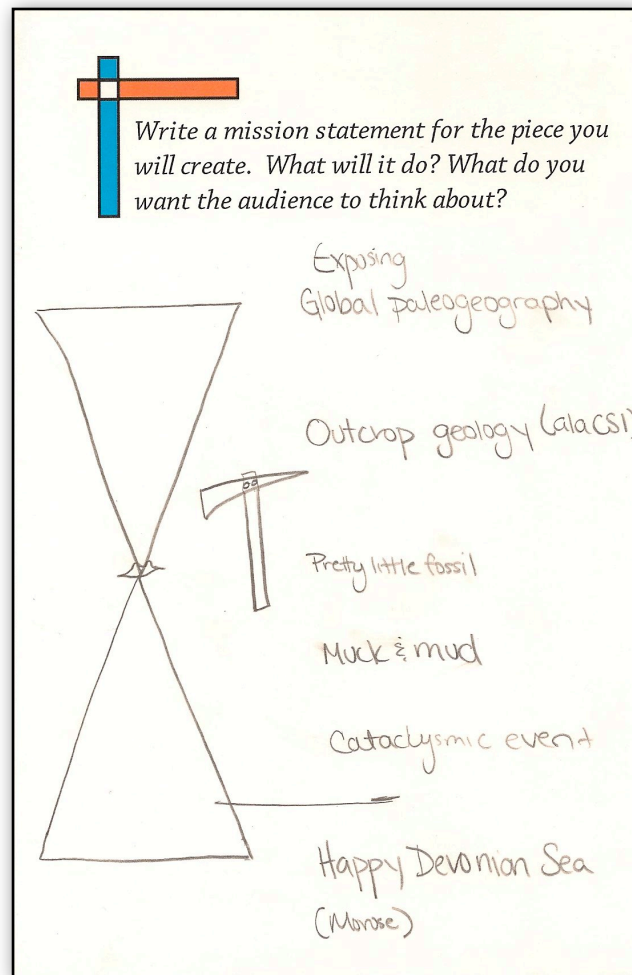 Write a mission statement for the piece you
will create. What will it do? What do you
want the audience to think about?
Exposing
Global paleogeography
Outcrop geology (alaCSI)
Pretty little fossil
Muck & mud
Cataclysmic event
Happy Devonian Sea
(Morose)